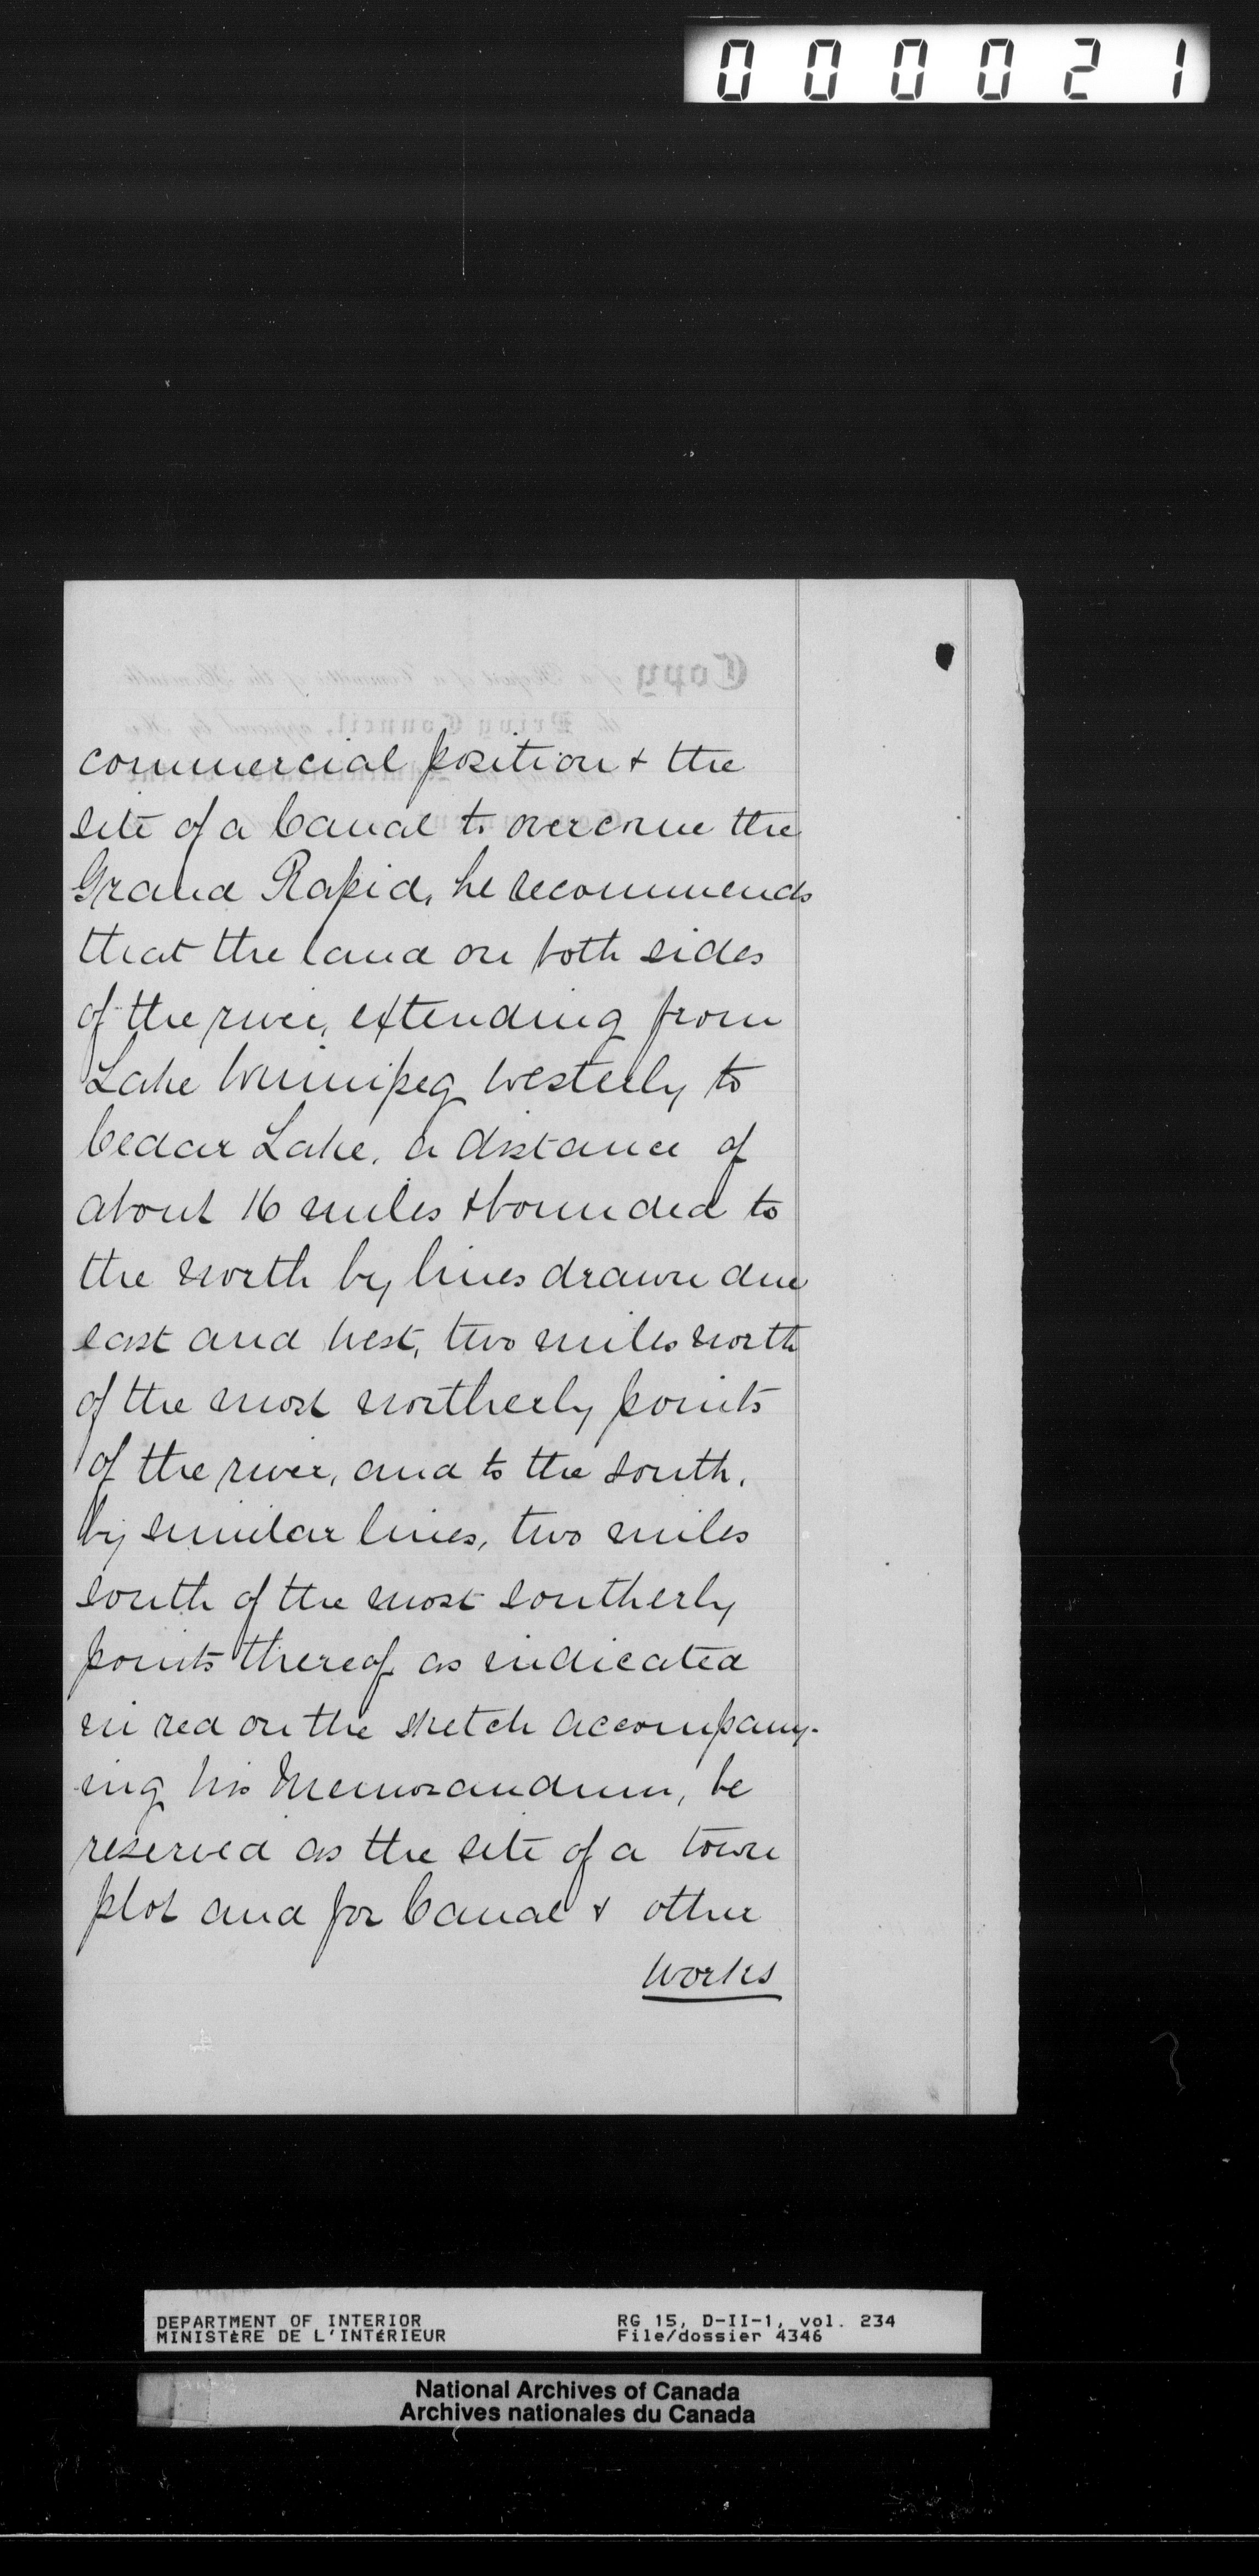 000021
commercial position & the
site of a Canal to overcome the
Grand Rapid, he recommends
that the land on both sides
of the river, extending from
Lake Winnipeg Westerly to
Cedar Lake, a distance of
about 16 miles & bounded to
the north by lines drawn due
east and west, two miles north
of the most northerly points
of the river, and to the south,
by similar lines, two miles
south of the most southerly
points thereof as indicated
in red on the sketch accompany-
ing his Memorandum, be
reserved as the site of a town
plot and for Canal & other
works
DEPARTMENT OF INTERIOR RG 15, D-II-1, vol. 234
MINISTÈRE DE L'INTÉRIEUR File/dossier 4346
National Archives of Canada
Archives nationales du Canada